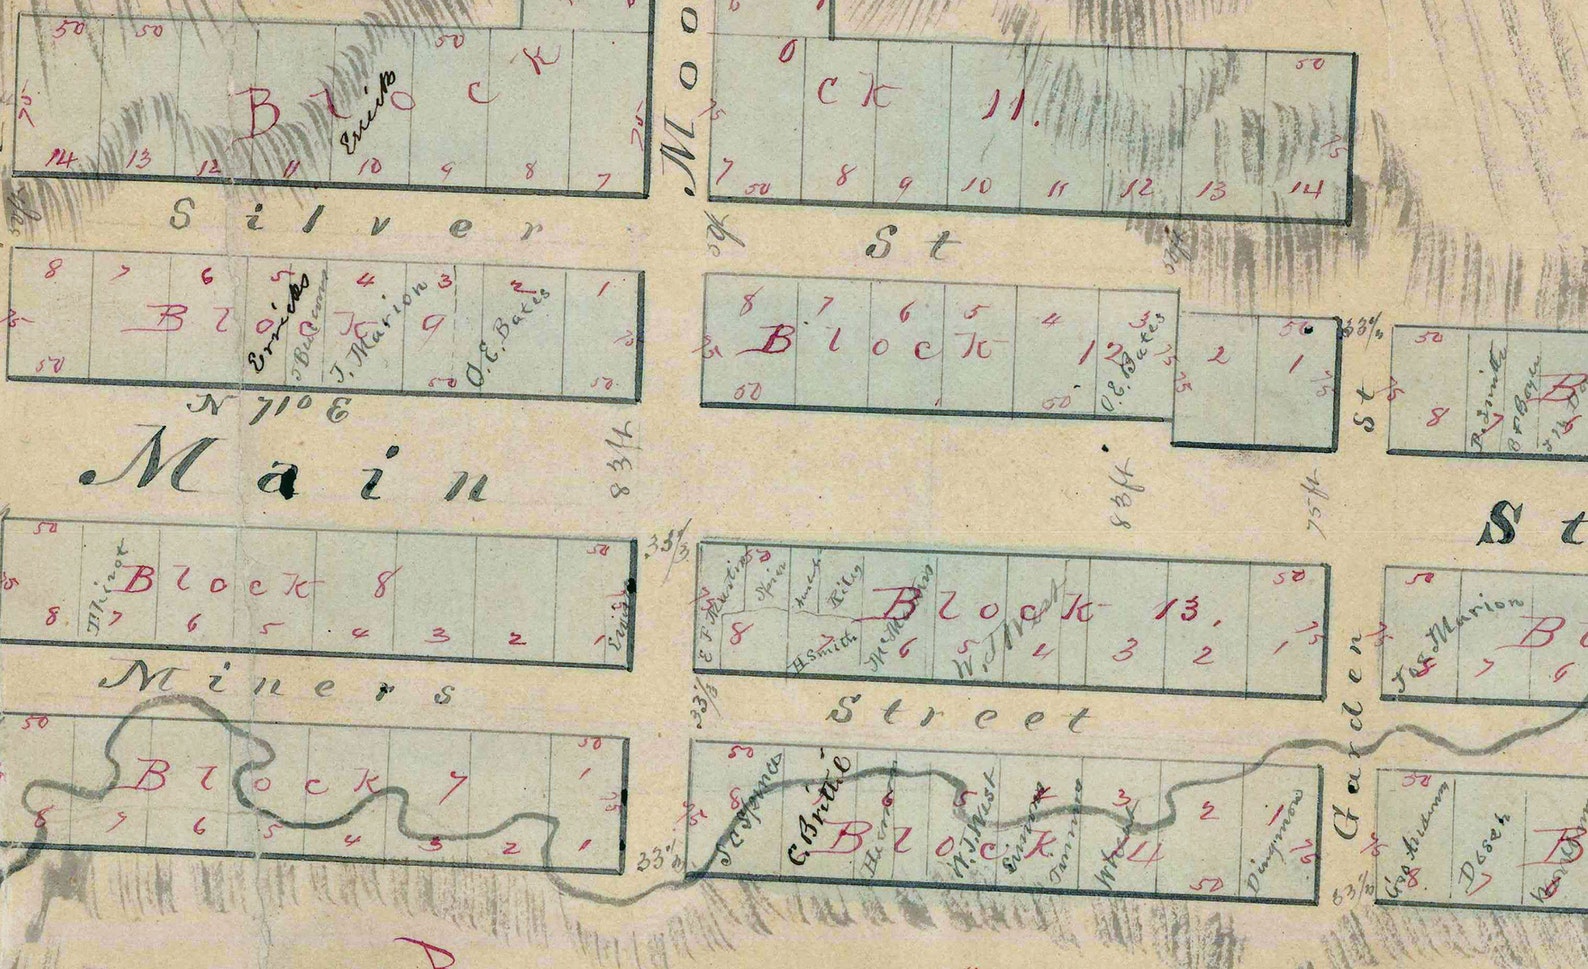 50 50 50
Block
Errick
75 75
14 13 12 11 10 9 8 7
Moo
ock 11.
50
75 75
7 50 8 9 10 11 12 13 14
Silver St
8 7 6 5 4 3 2 1
Block 9
Erricks
J. Marion
O.E. Bates
75 75
50 50 50
8 7 6 5 4 3
Block 12
O.E. Bates
75 75
50 50
2 1
50
75 75
33⅓
St
50
8 7 6
B
75
N 71° E
Main St
83 ft
83 ft
75 ft
50 50
Block 8
8 7 6 5 4 3 2 1
33⅓
50 50
E F Martin
Riley
H Smith
McManus
W.J. West
Block 13.
8 7 6 5 4 3 2 1
75
50
Jas Marion
Bl
8 7 6
Miners Street
33⅓
Garden
50 50
Block 7
8 7 6 5 4 3 2 1
75
33⅓
50
8 7 6 5 4 3 2 1
Block 4
W.J. West
Dingman
75 75
50
33⅓
50
8 7 6
Dosch
B
75